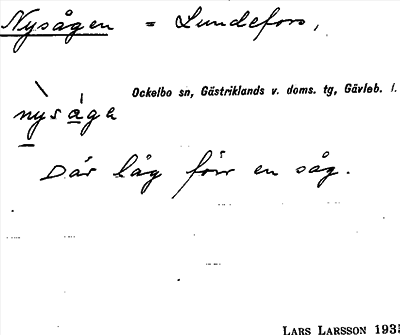 Nysågen = Lundefors,
Ockelbo sn, Gästriklands v. doms. tg, Gävleb. l.
nysága
Där låg förr en såg.
LARS LARSSON 193